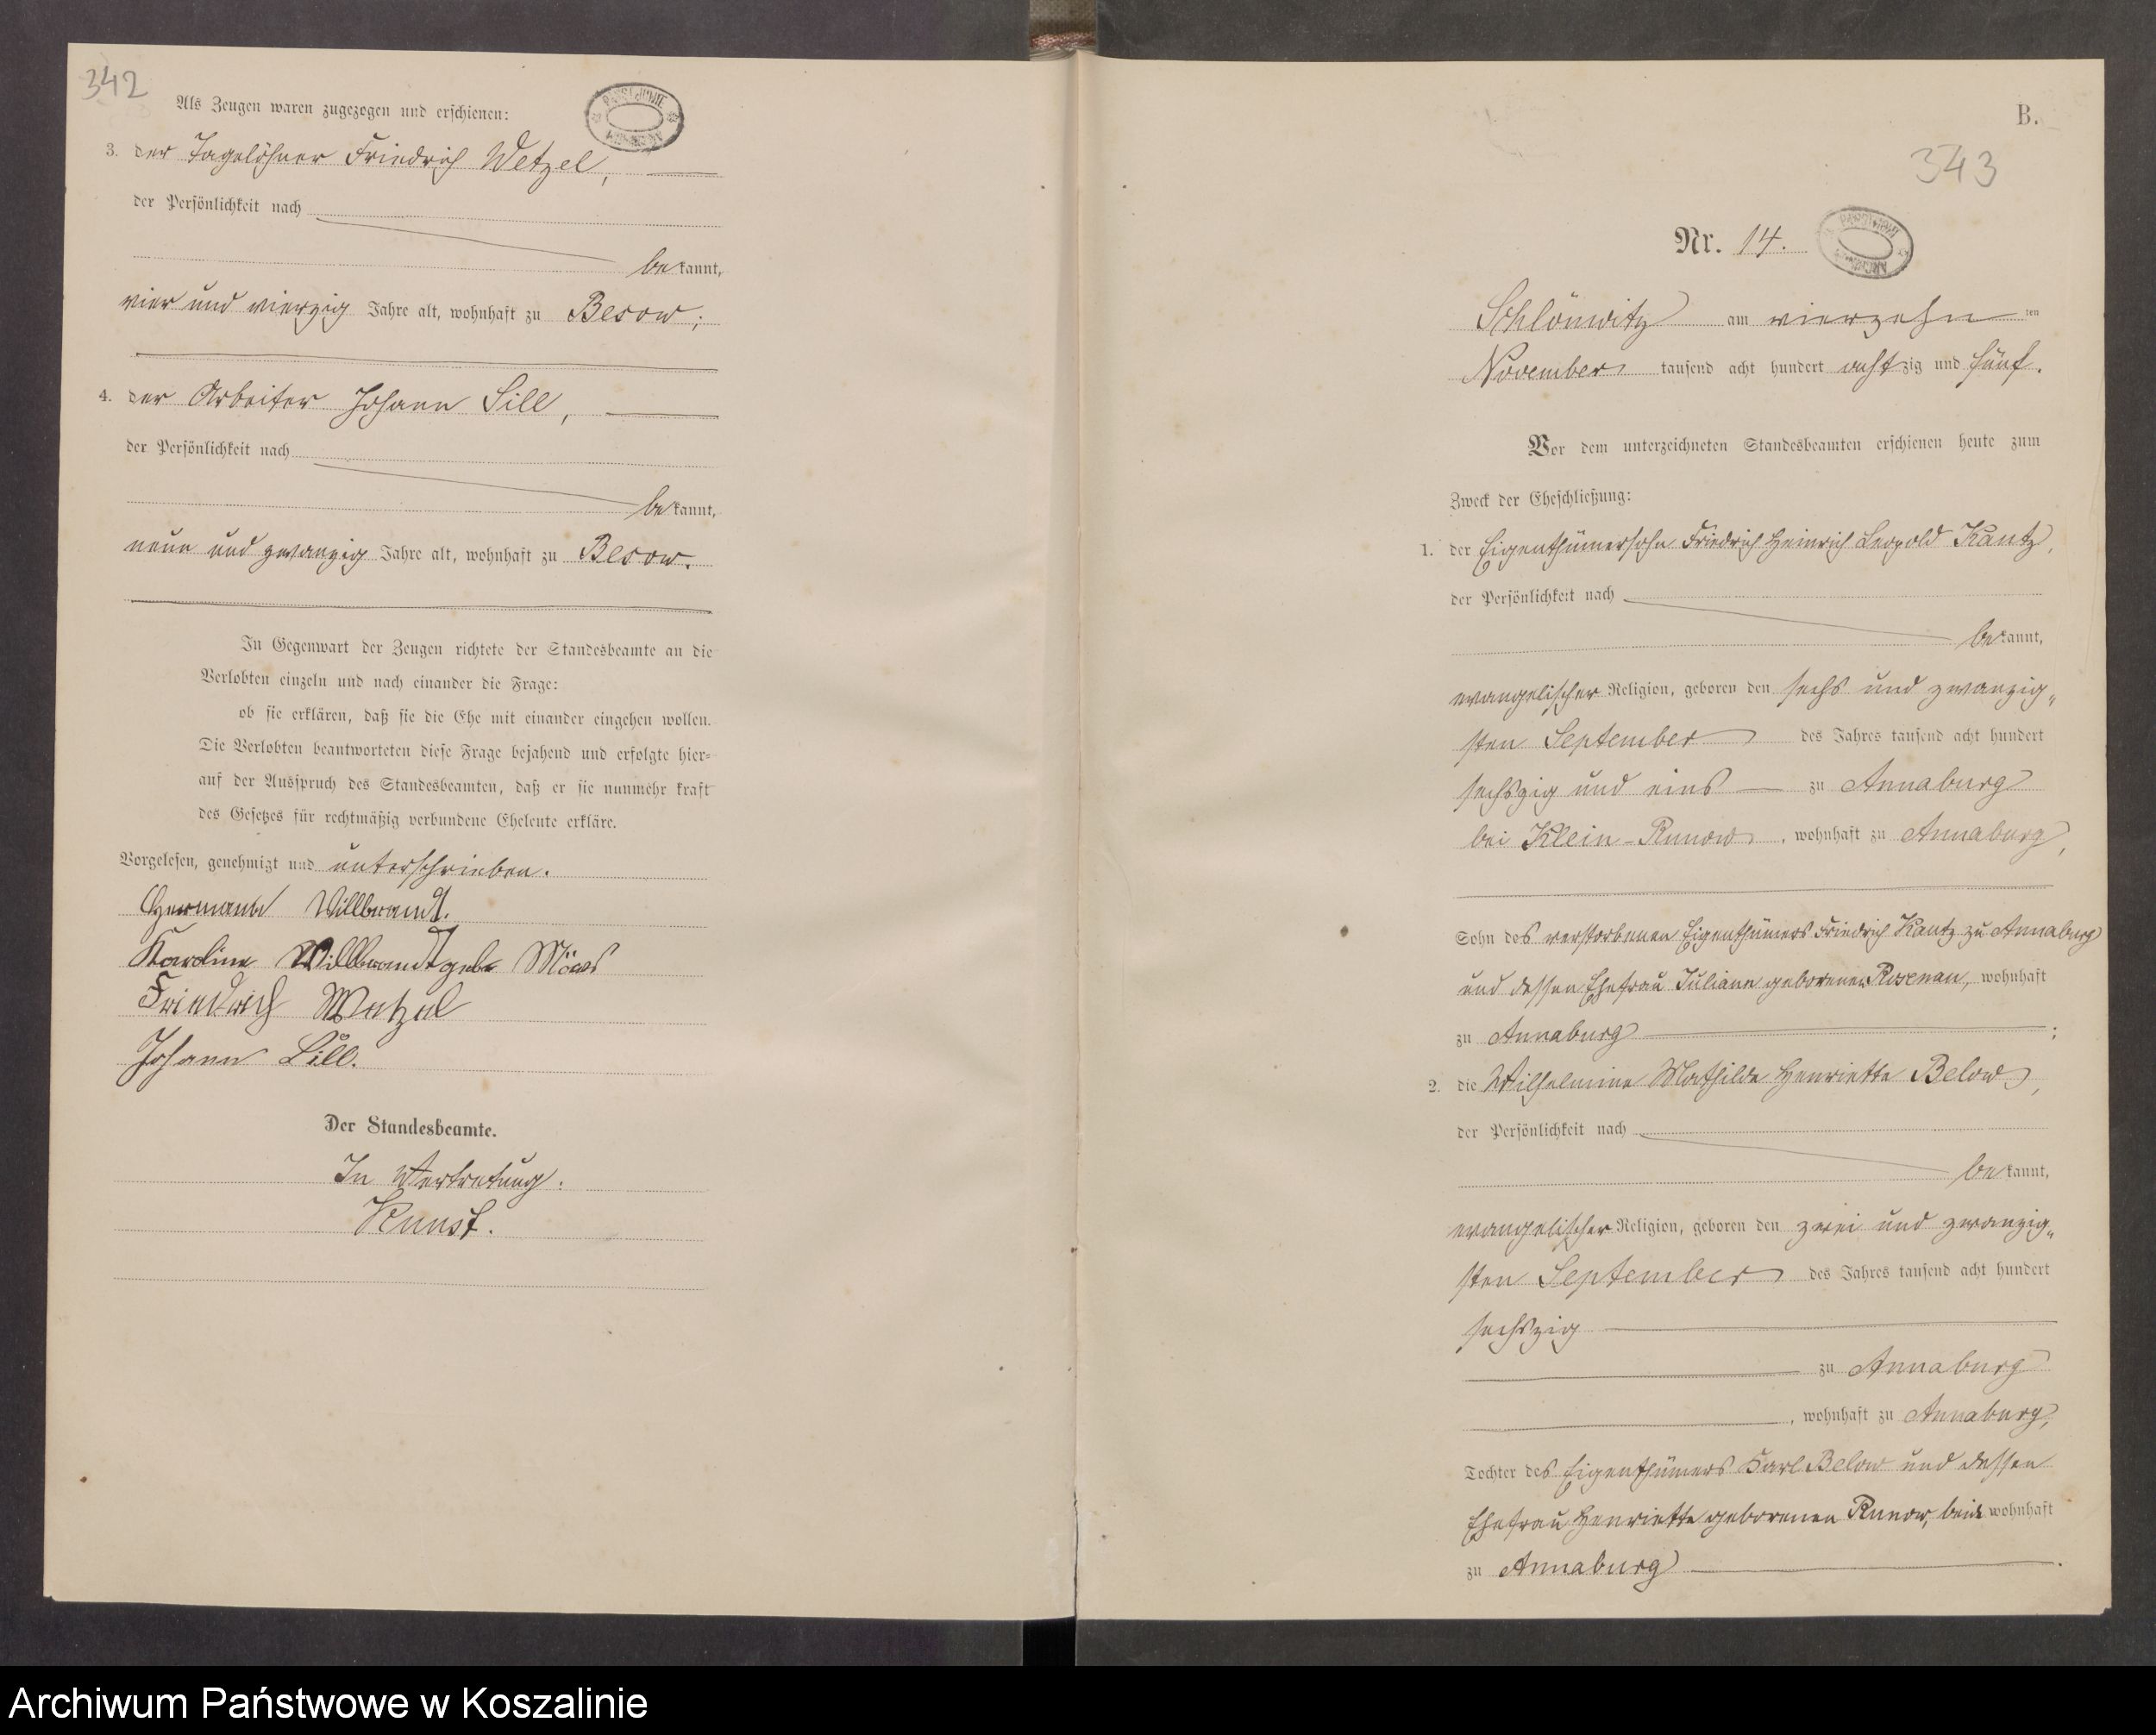 342
Als Zeugen waren zugezogen und erschienen:
3. der Tagelöhner Friedrich Wetzel,
der Persönlichkeit nach
bekannt,
vier und vierzig Jahre alt, wohnhaft zu Besow;
4. der Arbeiter Johann Sill,
der Persönlichkeit nach
bekannt,
neun und zwanzig Jahre alt, wohnhaft zu Besow.
In Gegenwart der Zeugen richtete der Standesbeamte an die
Verlobten einzeln und nach einander die Frage:
ob sie erklären, daß sie die Ehe mit einander eingehen wollen.
Die Verlobten beantworteten diese Frage bejahend und erfolgte hier=
auf der Ausspruch des Standesbeamten, daß er sie nunmehr kraft
des Gesetzes für rechtmäßig verbundene Eheleute erkläre.
Vorgelesen, genehmigt und unterschrieben.
Hermann Willbrandt.
Karoline Willbrandt geb
Friedrich Wetzel
Johann Sill.
Der Standesbeamte.
In Vertretung.
Kunst.
B.
343
Nr. 14.
Schlönwitz am vierzehn ten
November tausend acht hundert achtzig und fünf.
Vor dem unterzeichneten Standesbeamten erschienen heute zum
Zweck der Eheschließung:
1. der Eigenthümersohn Friedrich Heinrich Leopold Kantz,
der Persönlichkeit nach
bekannt,
evangelischer Religion, geboren den sechs und zwanzig„
sten September des Jahres tausend acht hundert
sechszig und eins zu Annaburg
bei Klein-Runow, wohnhaft zu Annaburg,
Sohn des verstorbenen Eigenthümers Friedrich Kantz zu Annaburg
und dessen Ehefrau Juliane geborenen Rosenau, wohnhaft
zu Annaburg ;
2. die Wilhelmine Mathilde Henriette Below,
der Persönlichkeit nach
bekannt,
evangelischer Religion, geboren den zwei und zwanzig„
sten September des Jahres tausend acht hundert
sechszig
zu Annaburg
, wohnhaft zu Annaburg,
Tochter des Eigenthümers Karl Below und dessen
Ehefrau Henriette geborenen Runow, beide wohnhaft
zu Annaburg .
Archiwum Państwowe w Koszalinie